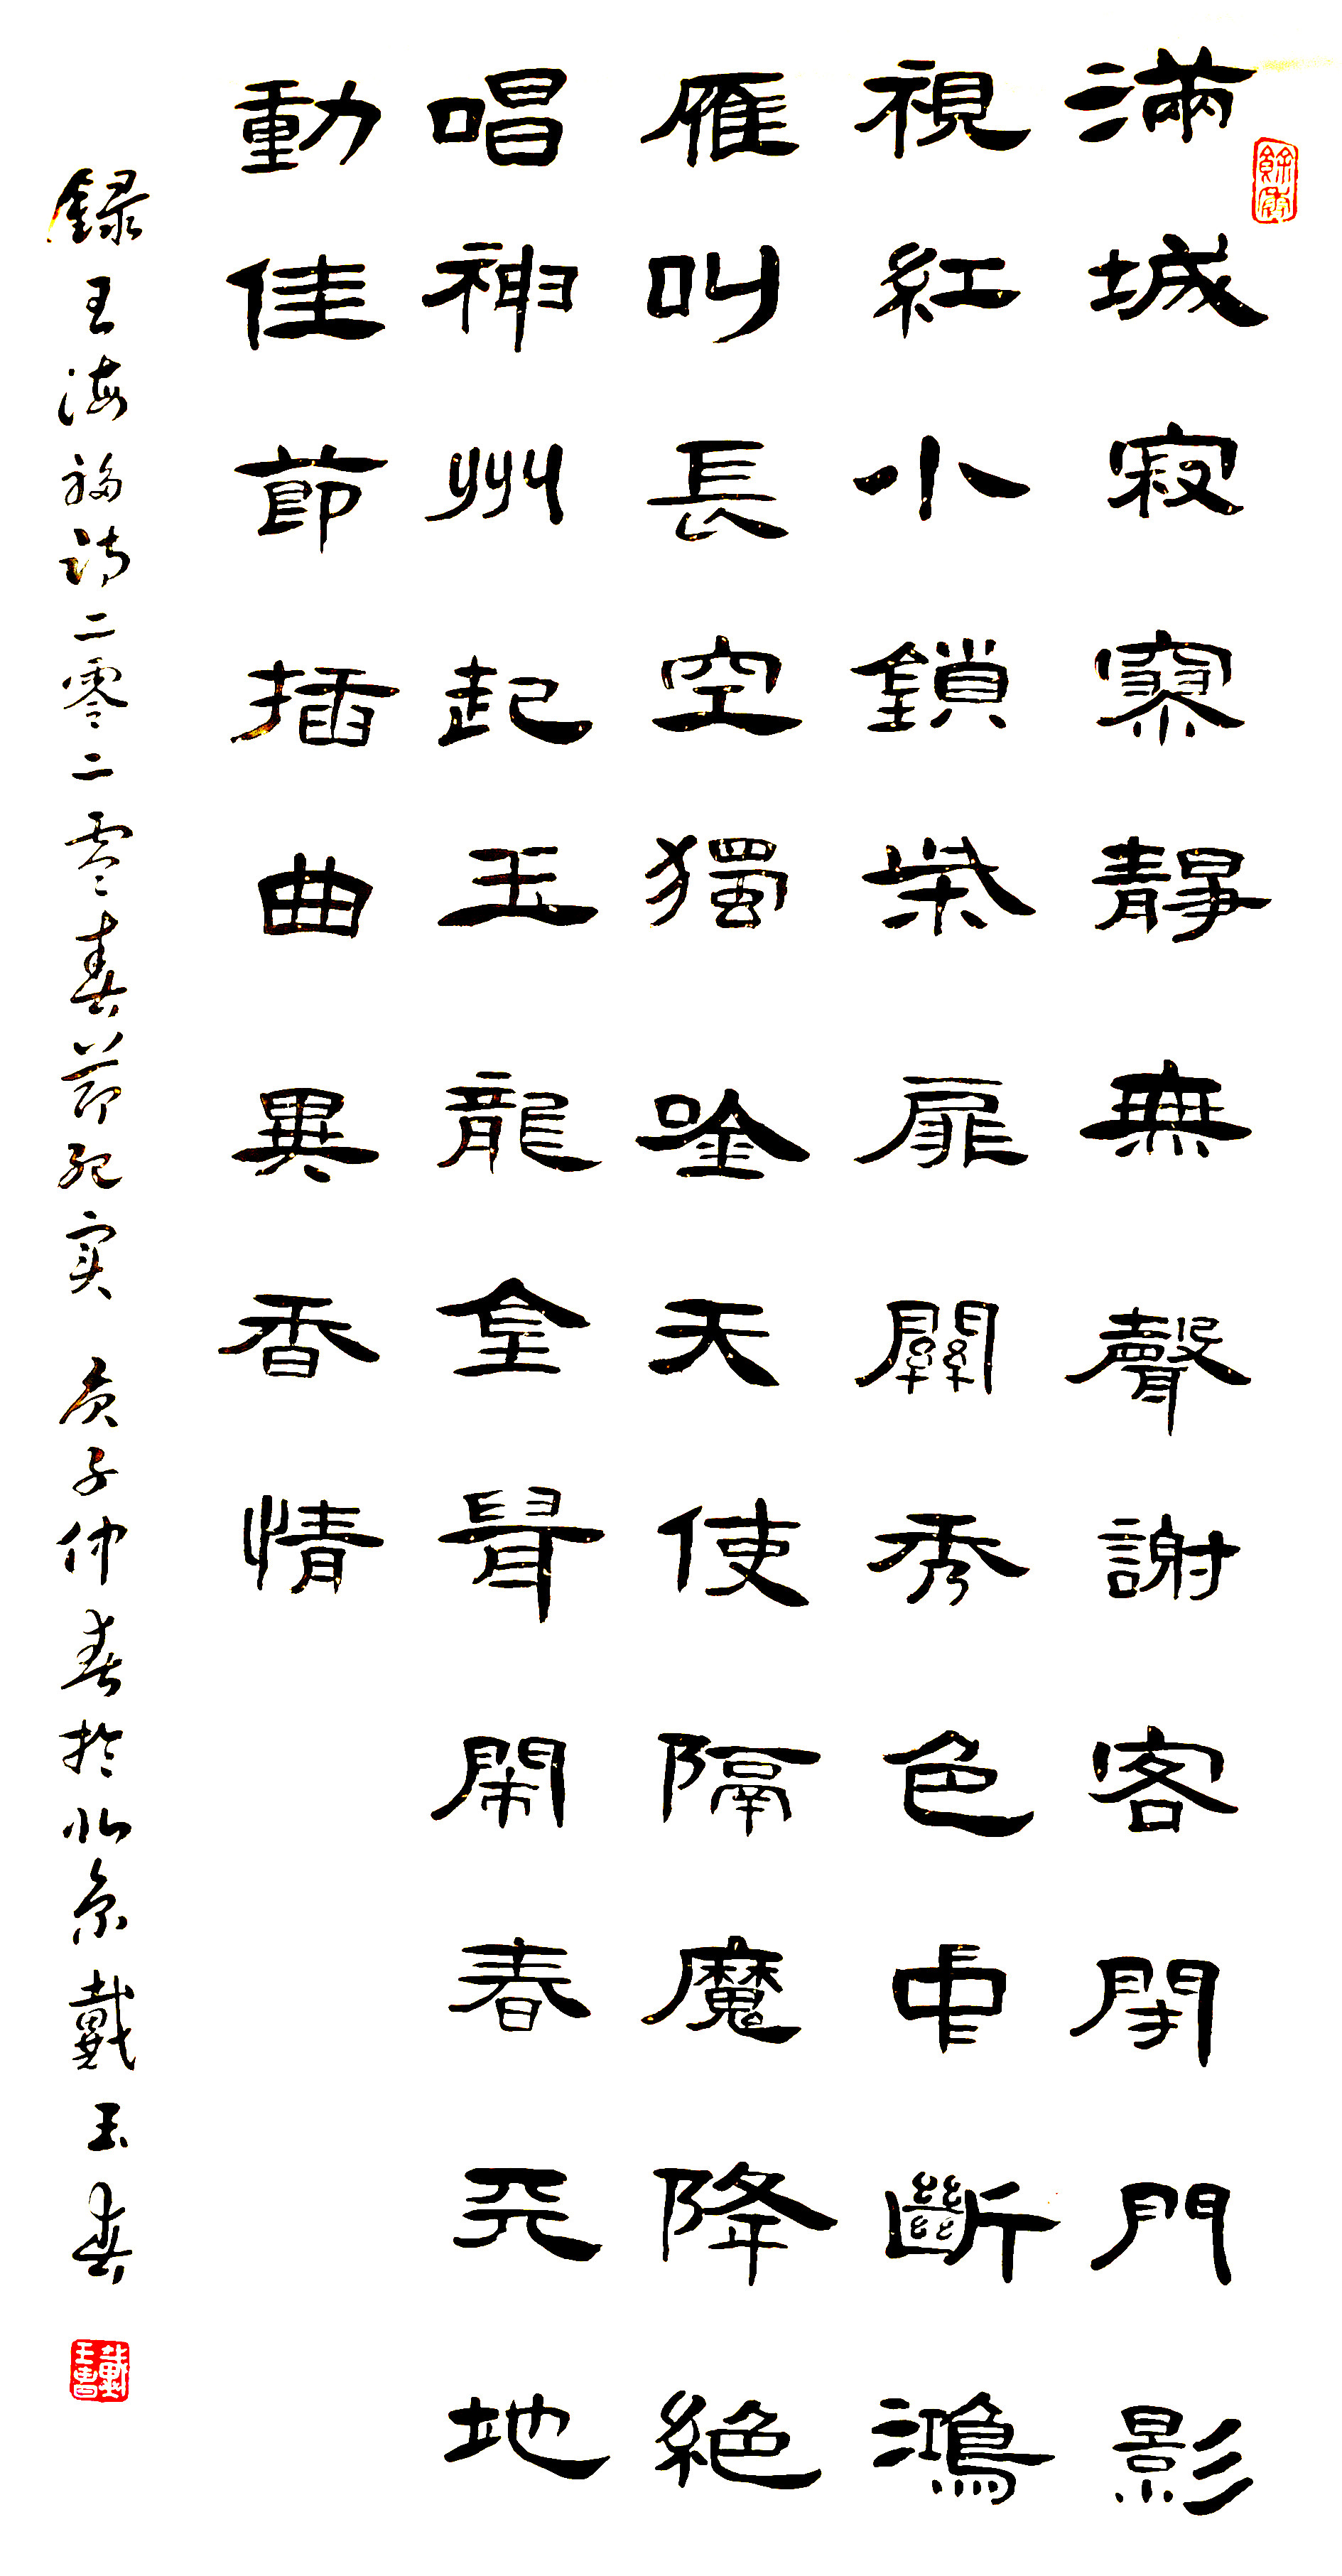 滿城寂寥靜無聲謝客閉門影
視紅小鎖柴扉關秀色中斷鴻
雁叫長空獨唫天使隔魔降絕
唱神州起玉龍鬧春天地
動佳節插曲異香情
録王海福诗二零二零春节纪实 庚子仲春於北京戴玉春